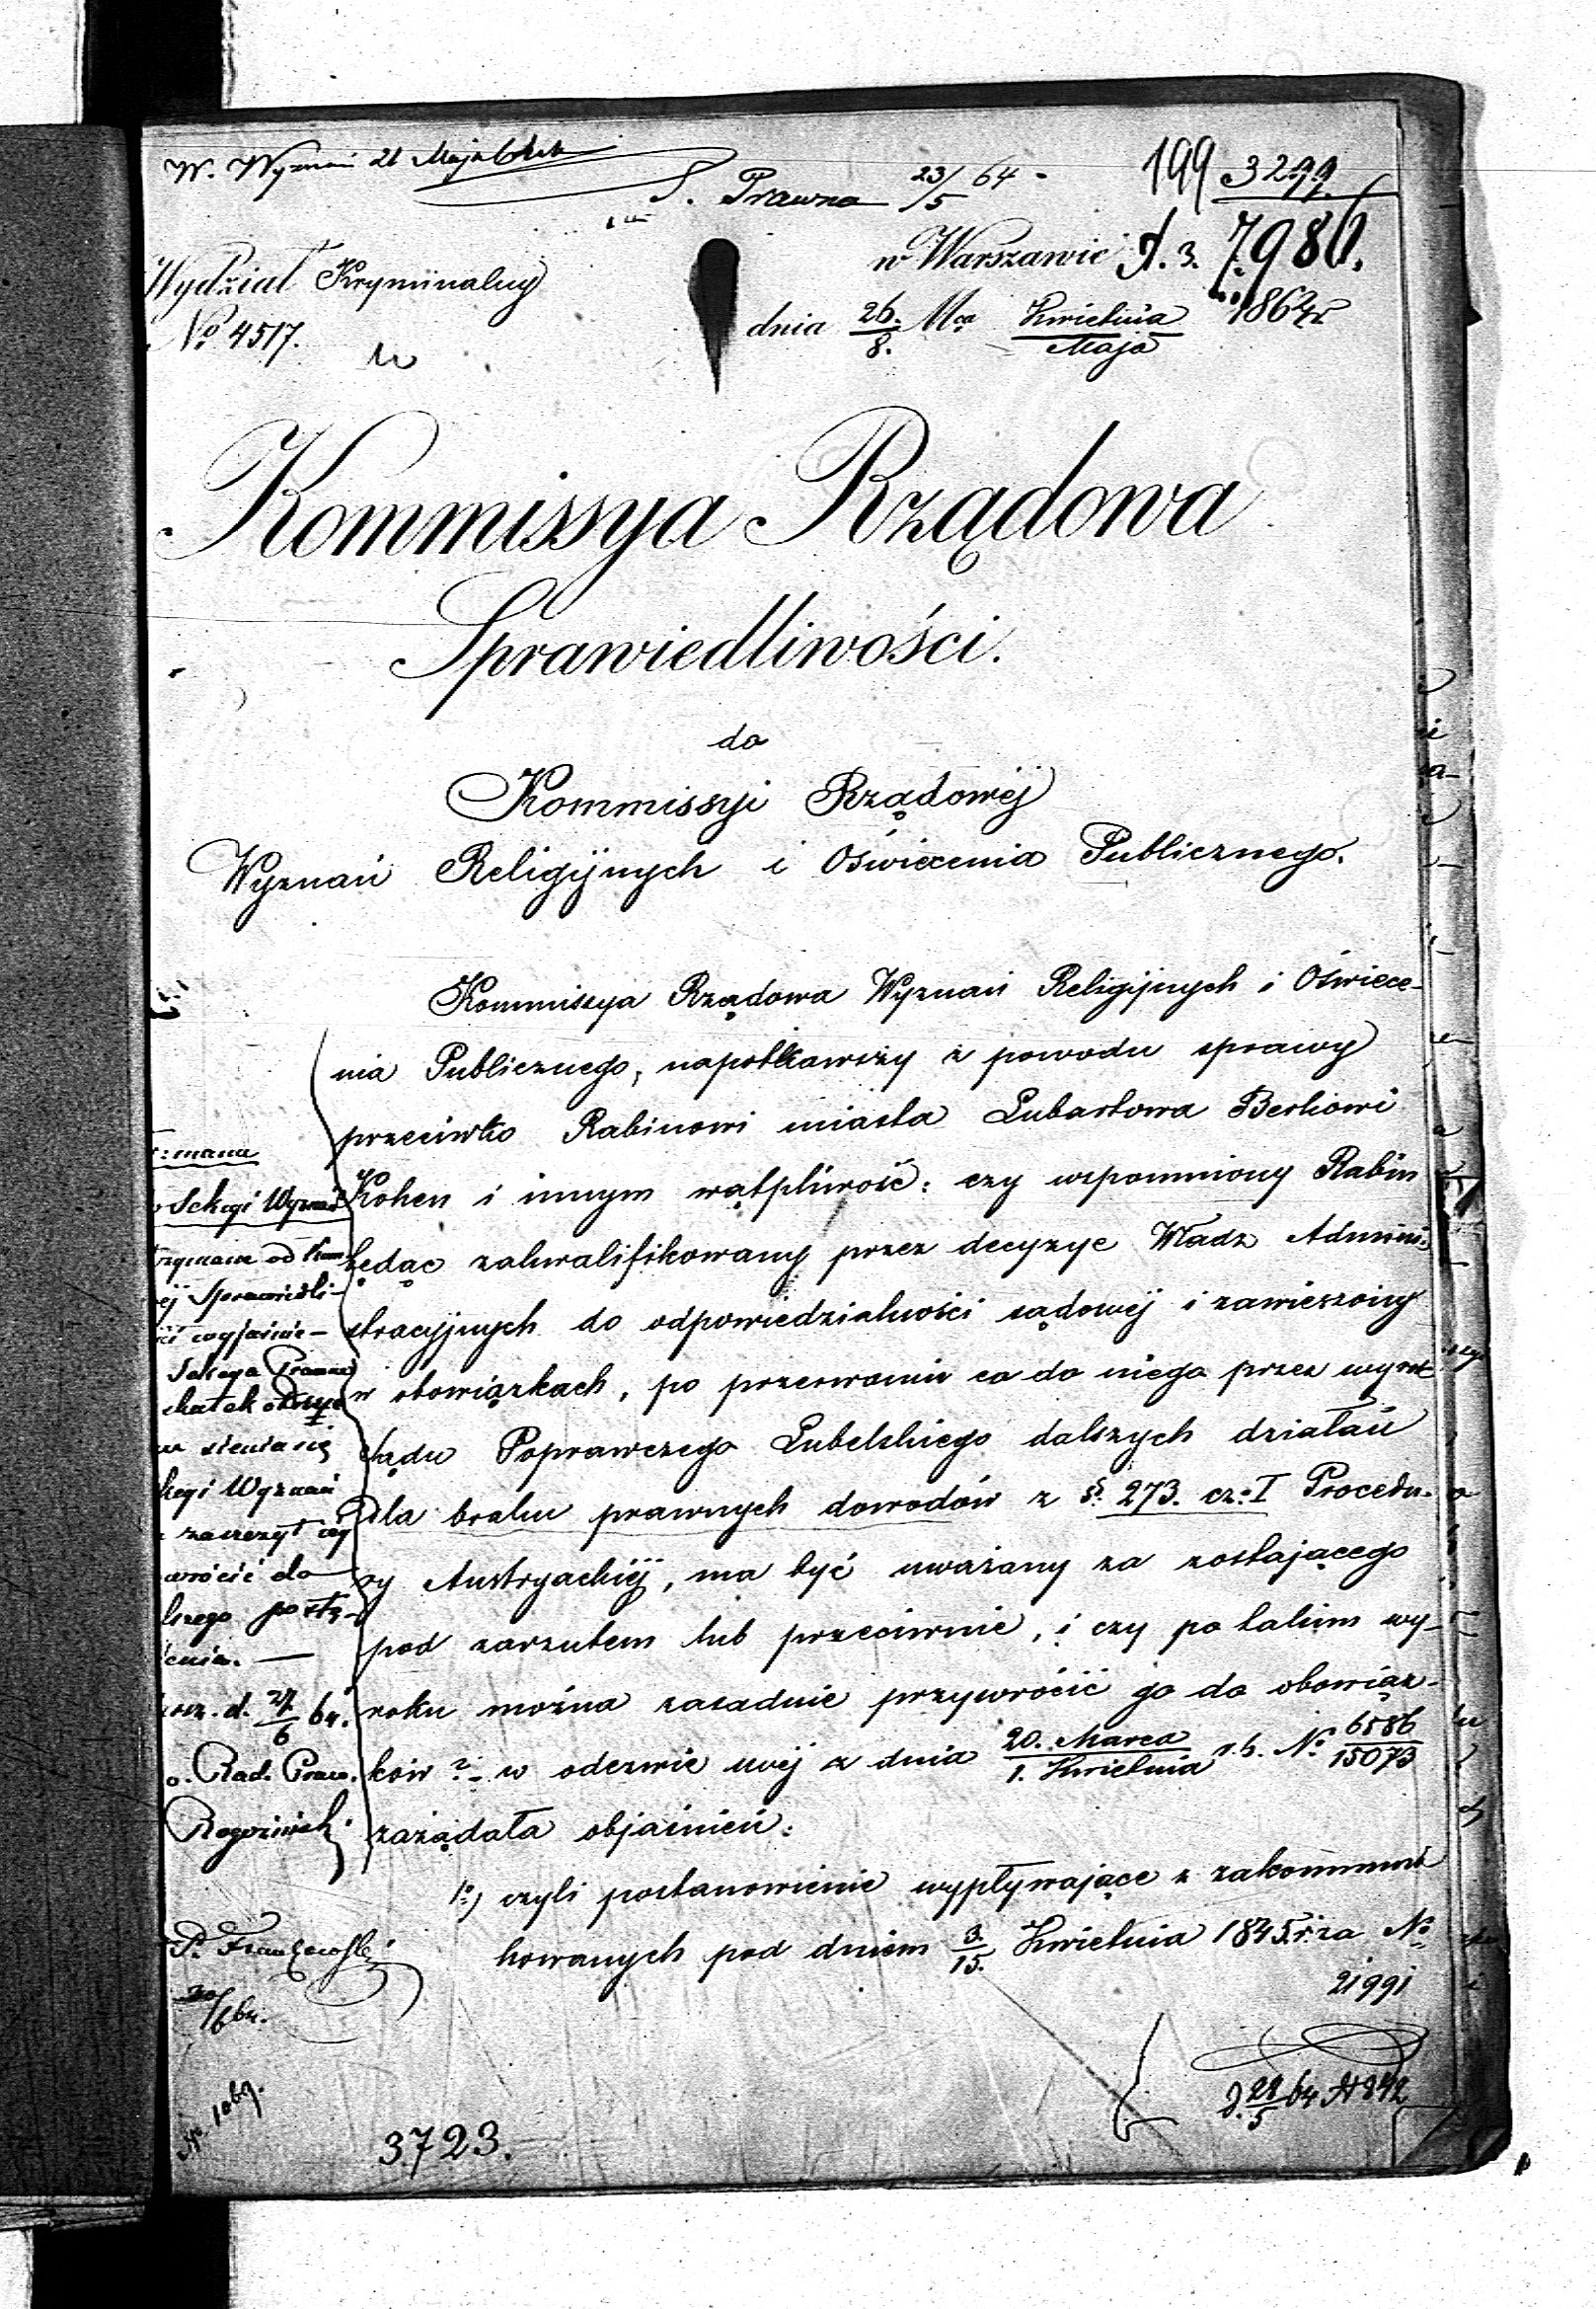 W. Wyznań 21 Maja
S. Prawna 23/5 64
199 3299.
w Warszawie
7980.
Wydział Kryminalny
No 4517.
dnia 26./8. Mca Kwietnia/Maja 1864 r
Kommissya Rządowa
Sprawiedliwości.
do
Kommissyi Rządowéj
Wyznań Religijnych i Oświecenia Publicznego.
Kommissya Rządowa Wyznań Religijnych i Oświece-
nia Publicznego, napotkawszy z powodu sprawy
przeciwko Rabinowi miasta Lubartowa Berkowi
Kohen i innym wątpliwość: czy wspomniony Rabin
będąc zakwalifikowany przez decyzye Władz Admini-
stracyjnych do odpowiedzialności sądowéj i zawieszony
w obowiązkach, po przerwaniu co do niego przez wyrok
Sądu Poprawczego Lubelskiego dalszych działań
dla braku prawnych dowodów z §. 273. cz: I Procedu-
ry Austryackiéj, ma być uważany za zostającego
pod zarzutem lub przeciwnie, i czy po takim wy-
roku można zasadnie przywrócić go do obowiąz-
ków? - w odezwie swéj z dnia 20. Marca/1. Kwietnia r.b. No 6586/15073
zażądała objaśnień:
1o) czyli postanowienie wypływające z zakommuni
kowanych pod dniem 3./15. Kwietnia 1845 r. za No
21991
Sekcyi Wyznań
éj Sprawiedli-
Sekcya Prawna
kcyi Wyznań
wrócić do
d. 27/6 64.
Rad. Praw.
3723.
28/5 64